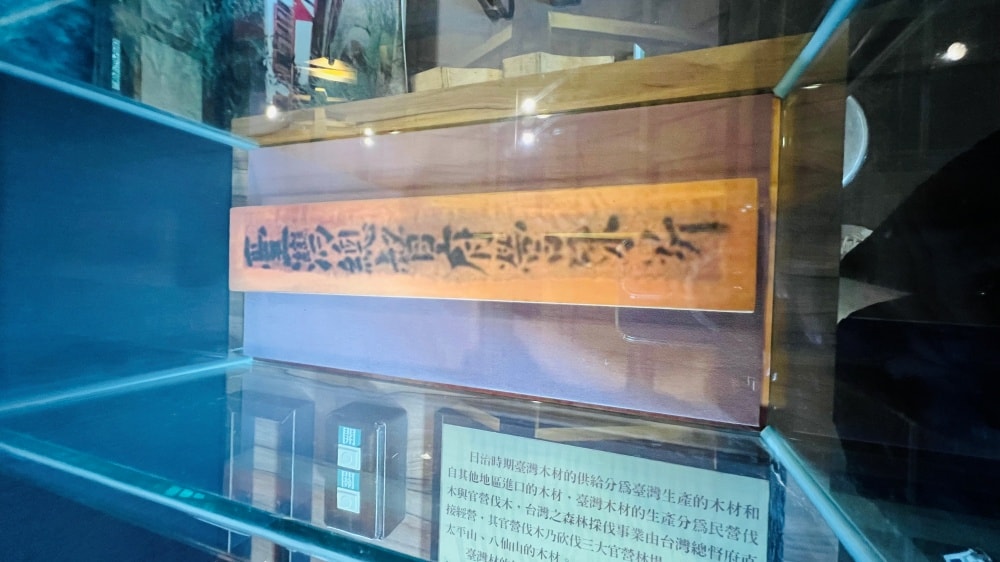 臺灣總督府營林所
開
關
日治時期臺灣木材的供給分爲臺灣生產的木材和
自其他地區進口的木材，臺灣木材的生產分爲民營伐
木與官營伐木，台灣之森林採伐事業由台灣總督府直
接經營，其官營伐木乃砍伐三大官營林場
太平山、八仙山的木材
臺灣材的